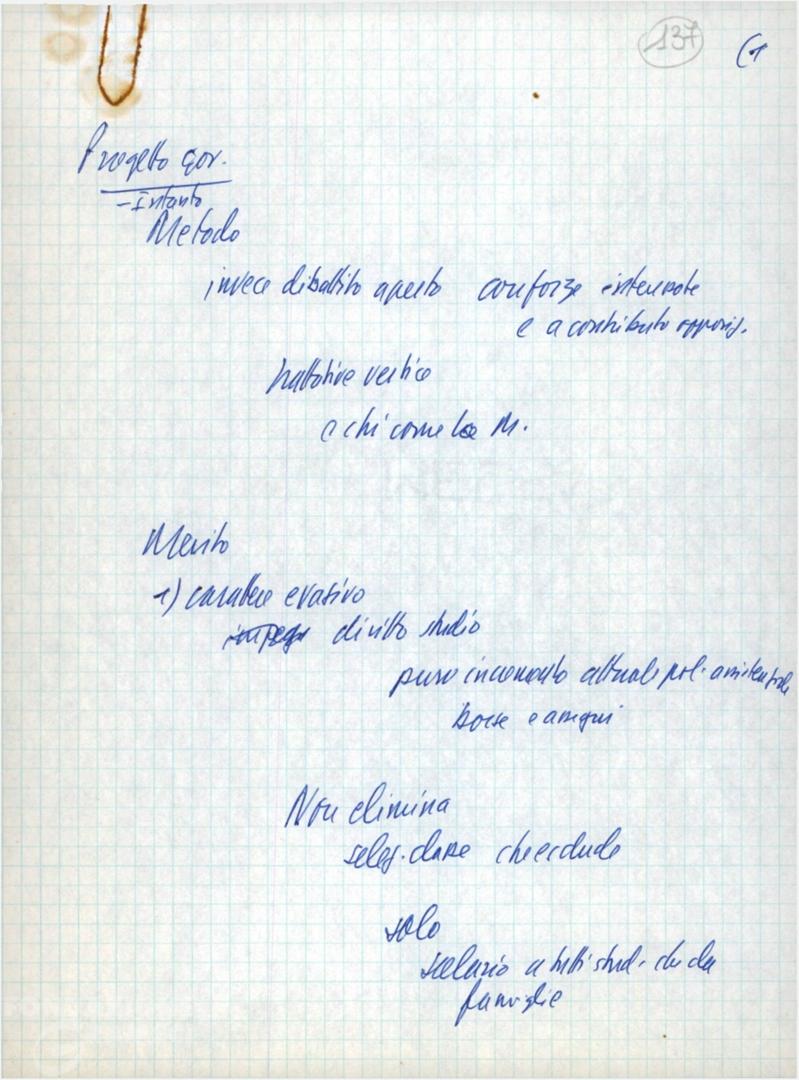 137
(1
Progetto gov.
- Intanto
Metodo
invece dibattito aperto con forze interessate
e a contributo opposiz.
trattative vertice
e chi come la M.
Merito
1) carattere evasivo
diritto studio
puro incremento attuale pol. assistenziale
borse e assegni
Non elimina
selez. classe che esclude
solo
salario a tutti stud. che da
famiglie